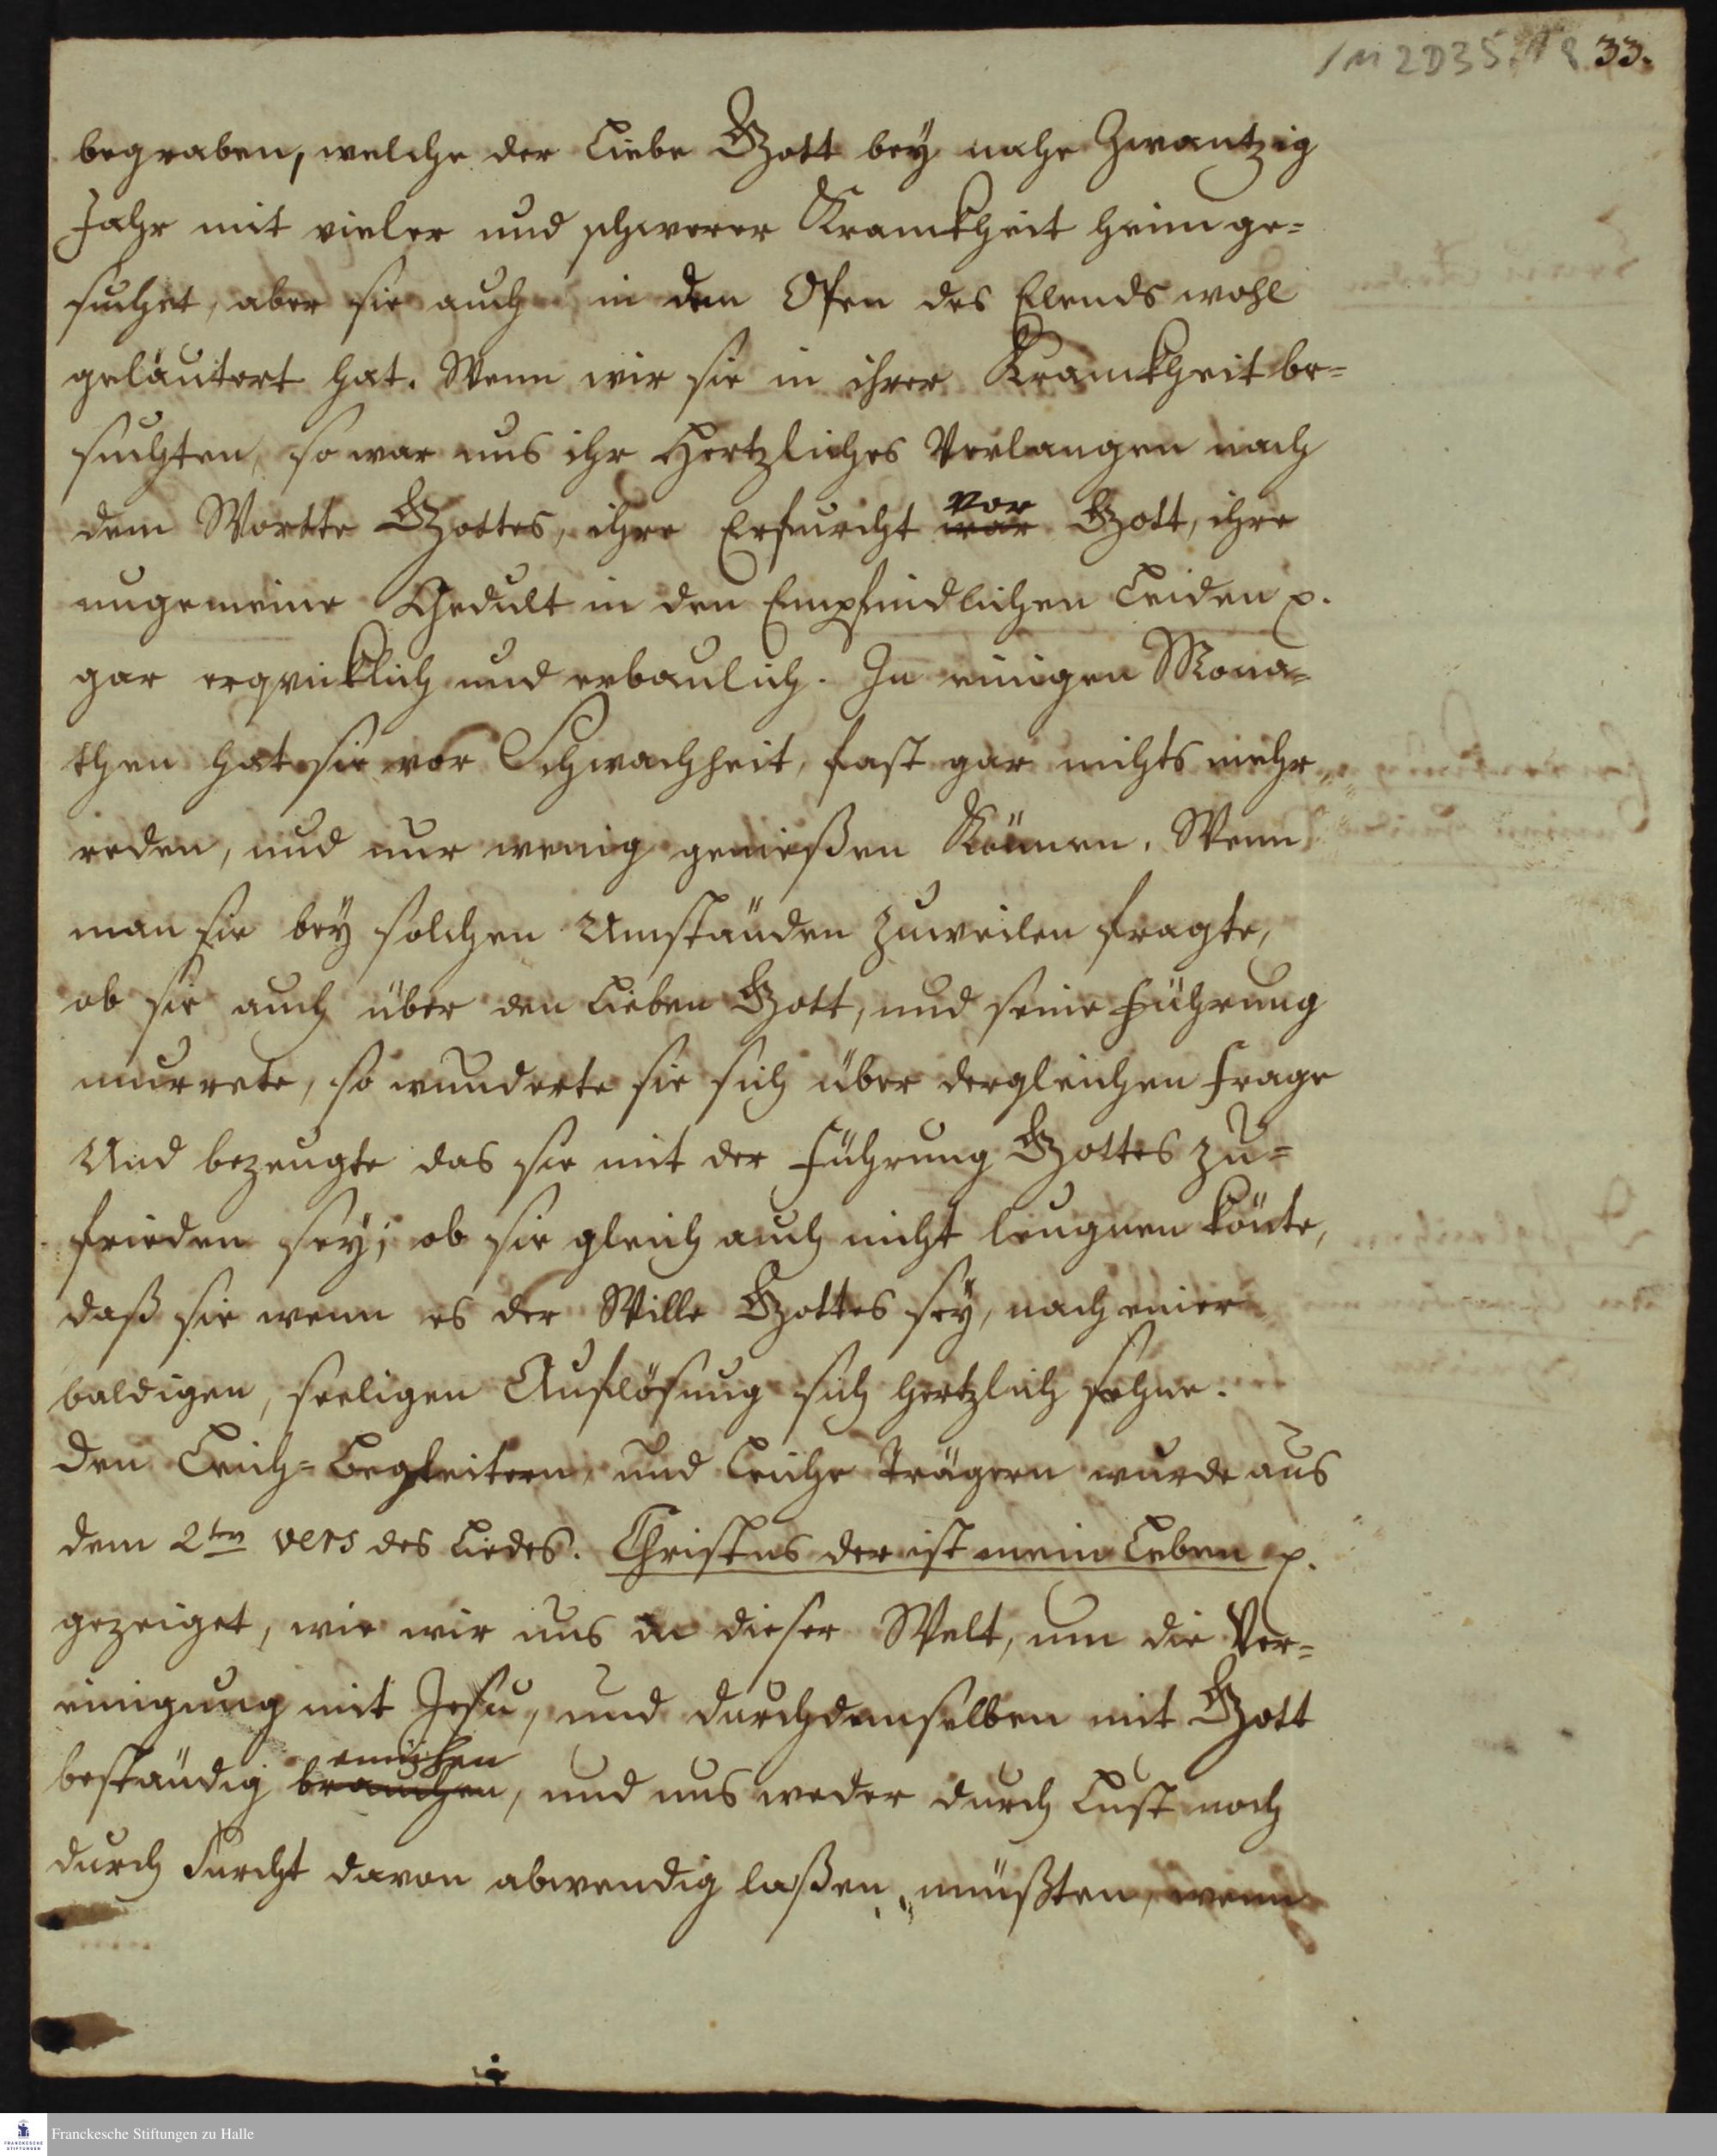 1M 2D35 : 18 33.
begraben, welche der Liebe Gott bey nahe Zwantzig
Jahr mit vieler und schwerer Kranckheit heim ge=
suchet, aber sie auch in dem Ofen des Elends wohl
geläutert hat. Wenn wir sie in ihrer Kranckheit be=
suchten, so war uns ihr Hertzliches Verlangen nach
dem Wortte Gottes, ihre Erfurcht war vor Gott, ihre
ungemeine Gedult in den Empfindlichen Leiden p.
gar erqvicklich und erbaulich. In einigen Mona=
then hat sie vor Schwachheit, fast gar nichts mehr
reden, und nur wenig genießen Können. Wenn
man sie bey solchen Umständen zuweilen fragte,
ob sie auch über den Lieben Gott, und seine Führung
murrete, so wunderte sie sich über dergleichen Frage
Und bezeugte das sie mit der Führung Gottes zu=
frieden sey; ob sie gleich auch nicht leugnen könte,
daß sie wenn es der Wille Gottes sey, nach einer
baldigen, seeligen Auflösung sich hertzlich sehne.
Den Leich=Begleitern, und Leiche Trägern wurde aus
dem 2ten vers des Liedes. Christus der ist mein Leben p.
gezeiget, wie wir uns in dieser Welt, um die Ver=
einigung mit Jesu, und durch denselben mit Gott
beständig brauchen emühen, und uns weder durch Lust noch
durch Furcht davon abwendig laßen müßten, wenn
Franckesche Stiftungen zu Halle